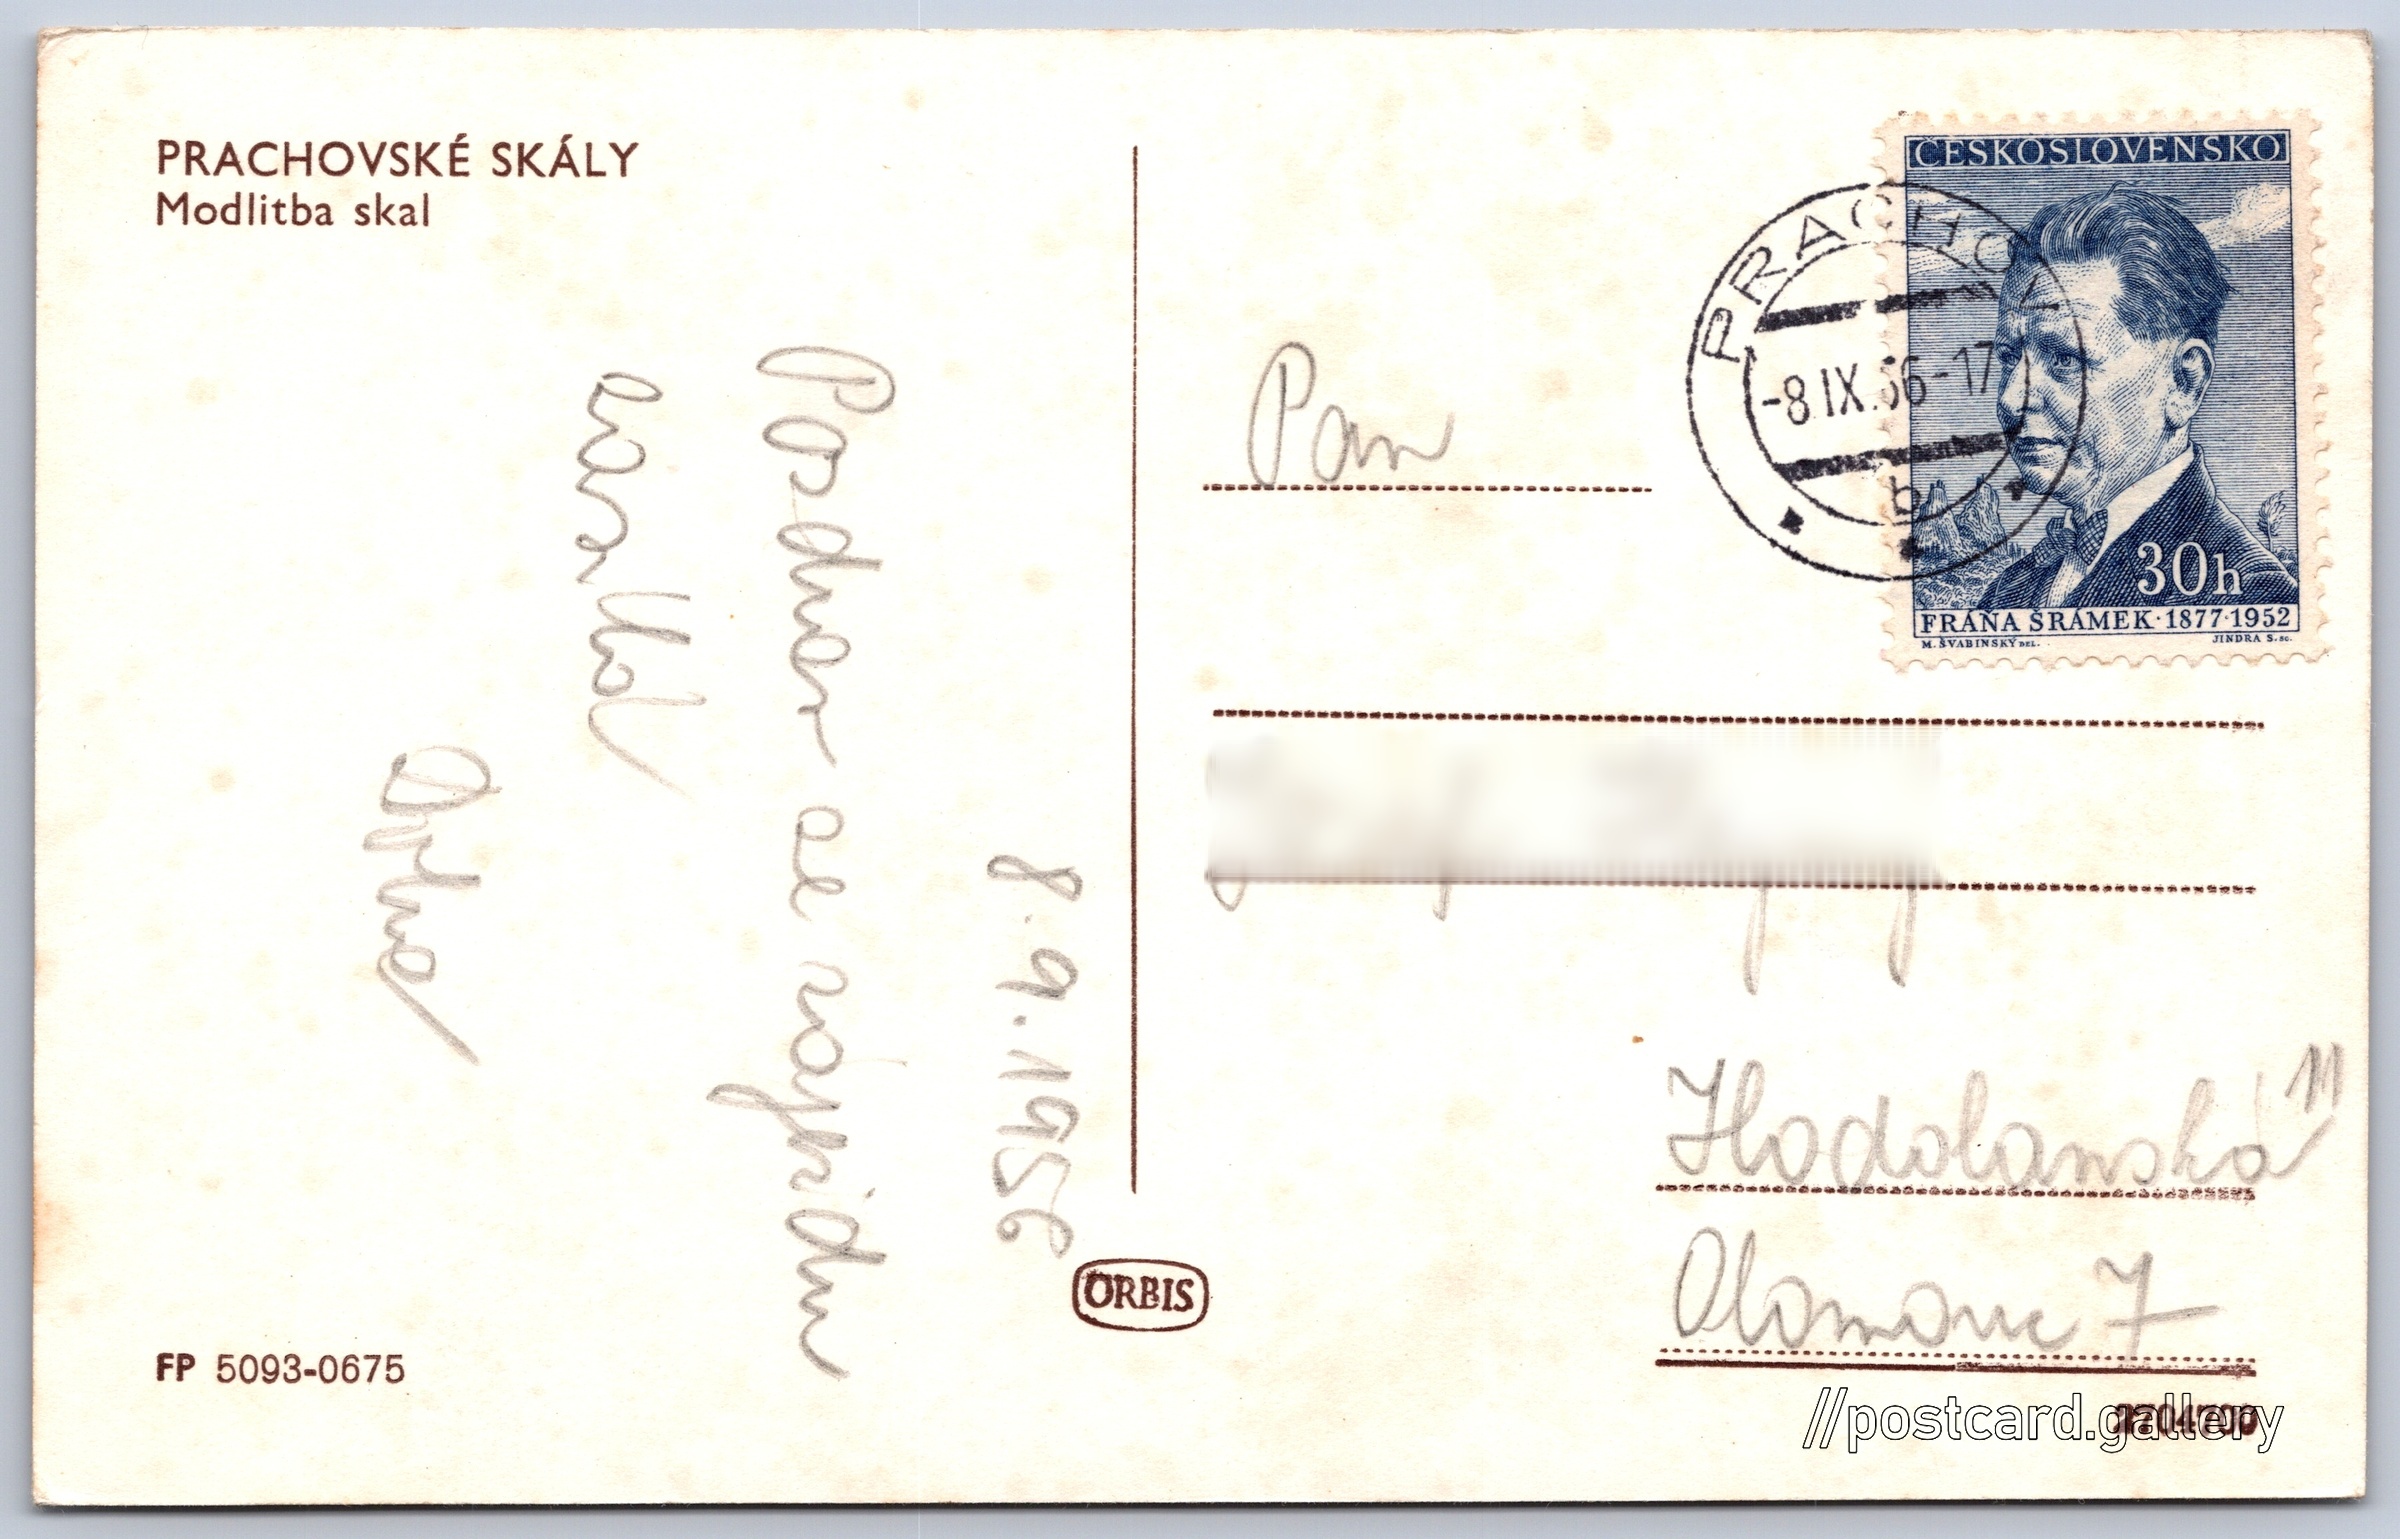 PRACHOVSKÉ SKÁLY
Modlitba skal
8.9.1956
Pozdrav ze zájezdu
zasílá
FP 5093-0675
ORBIS
ČESKOSLOVENSKO
30h
FRÁŇA ŠRÁMEK·1877·1952
M. ŠVABINSKÝ DEL.
JINDRA S. SC.
PRACHOV
-8.IX.56-17
b
Pan
Hodolanská 11
Olomouc 7
//postcard.gallery